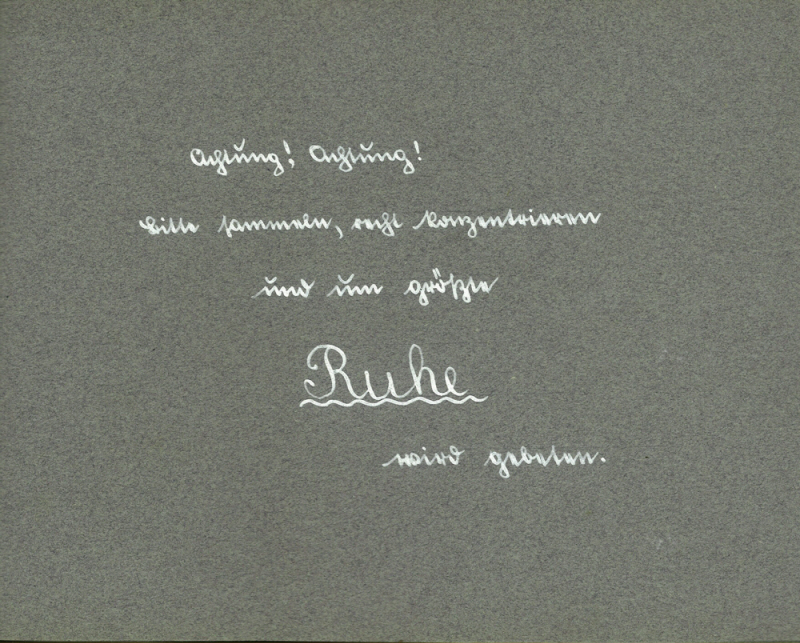 Achtung! Achtung!
Bitte sammeln, recht konzentrieren
und um größte
Ruhe
wird gebeten.